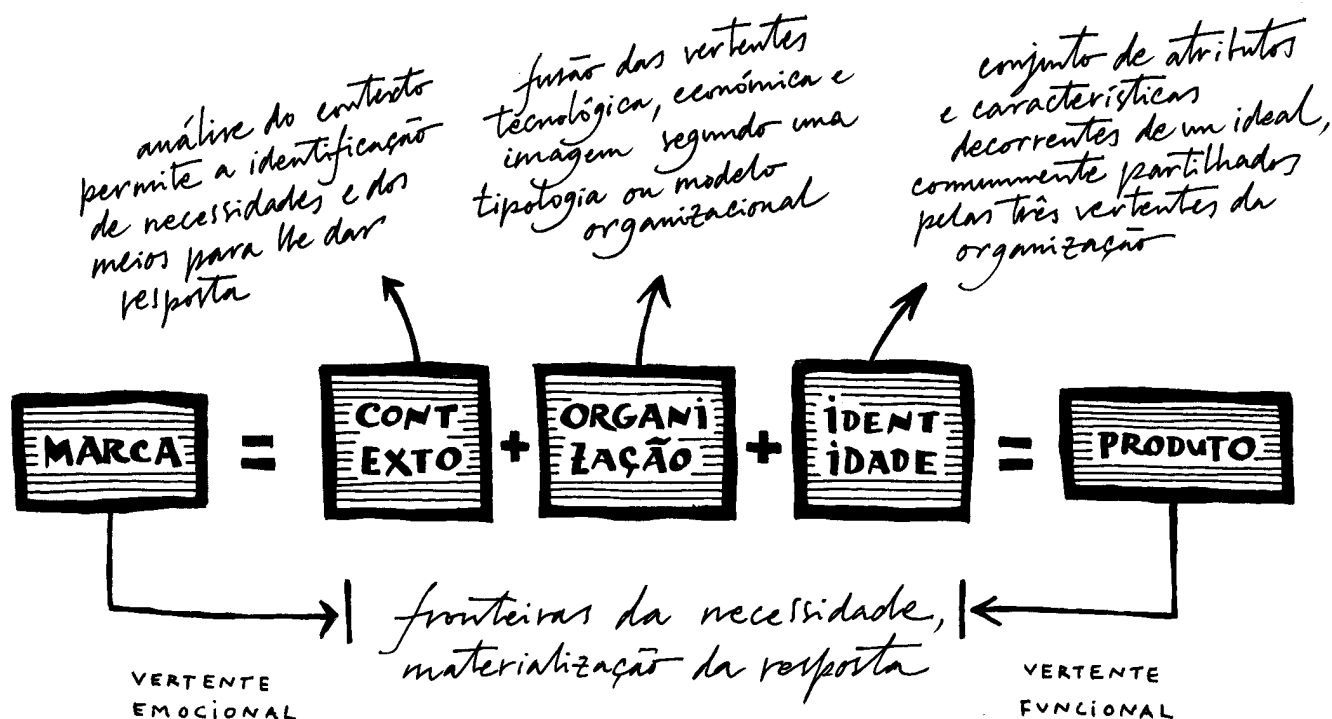 análise do contexto
permite a identificação
de necessidades e dos
meios para lhe dar
resposta
fusão das vertentes
tecnológica, económica e
imagem segundo uma
tipologia ou modelo
organizacional
conjunto de atributos
e características
decorrentes de um ideal,
comummente partilhados
pelas três vertentes da
organização
MARCA
=
CONT
EXTO
+
ORGANI
ZAÇÃO
+
IDENT
IDADE
=
PRODUTO
fronteiras da necessidade,
materialização da resposta
VERTENTE
EMOCIONAL
VERTENTE
FUNCIONAL